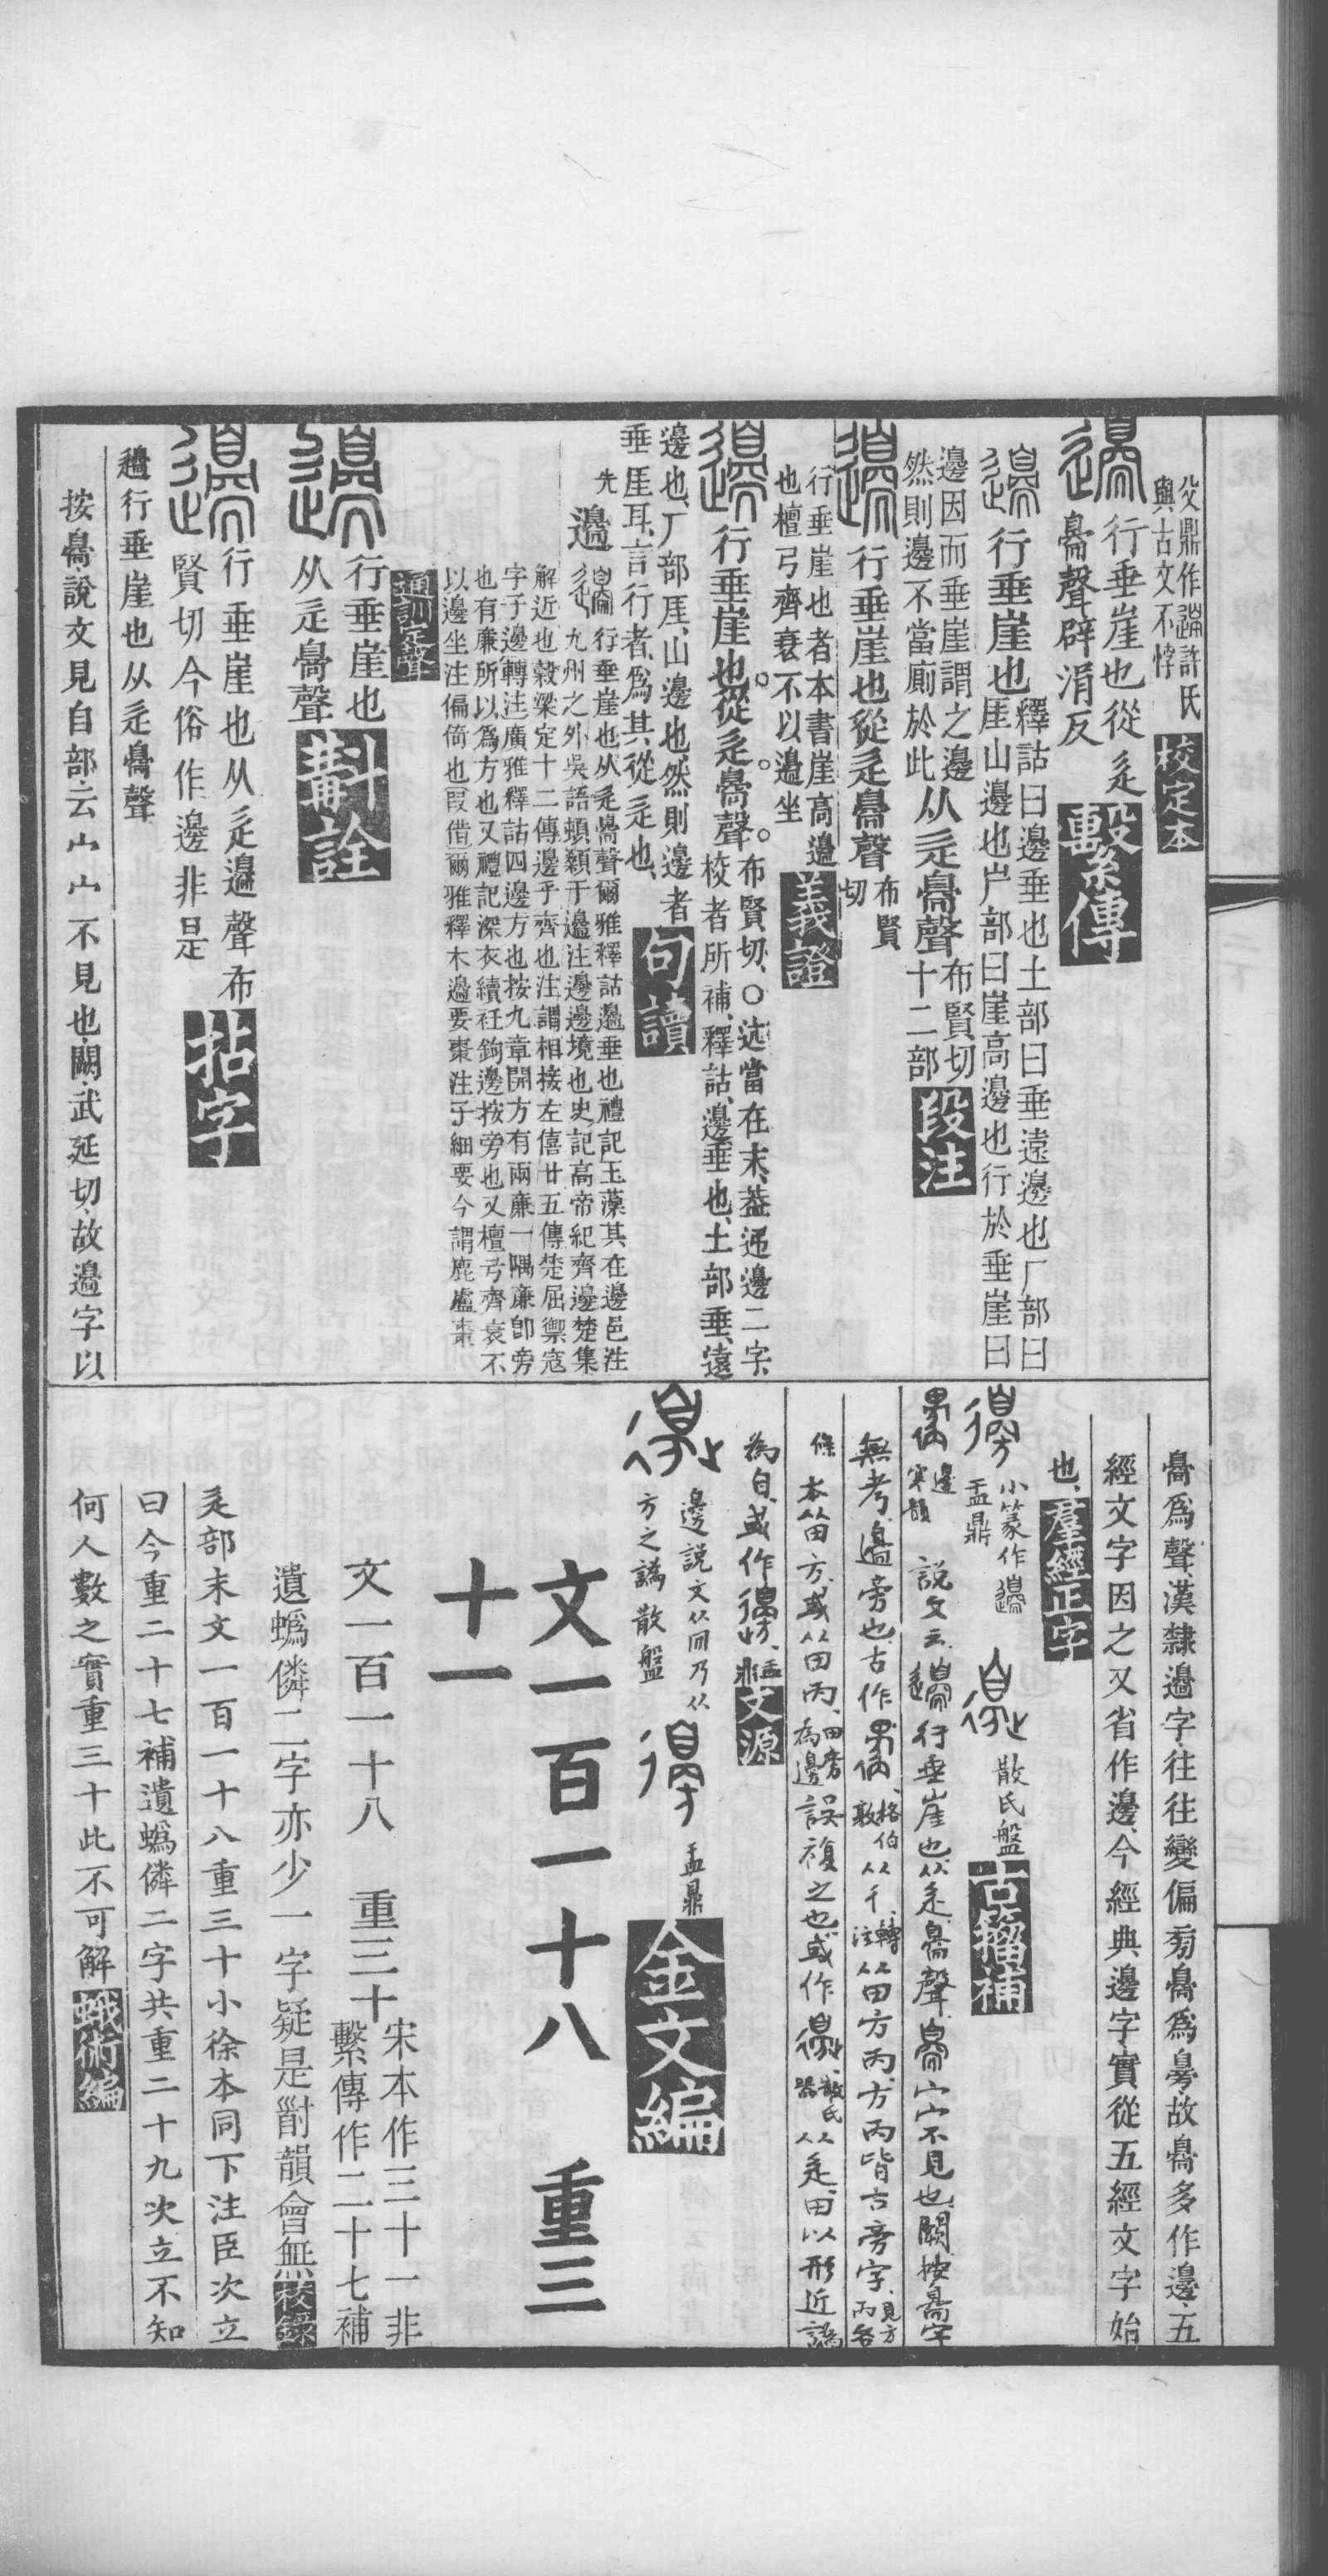 父鼎作邊許氏
與古文不悖
校定本
行垂崖也從辵
臱聲辟涓反
繫傳
行垂崖也
釋詁曰邊垂也土部曰垂遠邊也厂部曰
厓山邊也屵部曰崖高邊也行於垂崖曰
邊因而垂崖謂之邊
然則邊不當廁於此
从辵臱聲
布賢切
十二部
段注
行垂崖也從辵臱聲
布賢
切
行垂崖也者本書崖高邊
也檀弓齊衰不以邊坐
義證
行垂崖也從辵臱聲
布賢切、〇迒當在末、葢迒邊二字、
校者所補、釋詁、邊、垂也、土部、垂、遠
邊也、厂部、厓、山邊也、然則邊者
垂厓耳、言行者、爲其從辵也、
句讀
先
邊
行垂崖也从辵臱聲爾雅釋詁邊垂也禮記玉藻其在邊邑注
九州之外吳語頓顙于邊注邊邊境也史記高帝紀齊邊楚集
解近也穀梁定十二傳邊乎齊也注謂相接左僖廿五傳楚屈禦寇
字子邊轉注廣雅釋詁四邊方也按九章開方有兩廉一隅廉卽旁
也有廉所以爲方也又禮記深衣續衽鉤邊按旁也又檀弓齊衰不
以邊坐注偏倚也叚借爾雅釋木邊要棗注子細要今謂鹿盧棗
通訓定聲
行垂崖也
从辵臱聲
斠詮
行垂崖也从辵邊聲布
賢切今俗作邊非是
拈字
邊行垂崖也从辵臱聲
按臱說文見自部云宀宀不見也闕武延切故邊字以
臱爲聲漢隸邊字往往變偏旁臱爲臱故臱多作邊五
經文字因之又省作邊今經典邊字實從五經文字始
也、
羣經正字
小篆作邊
盂鼎
散氏盤
古籀補
邊
寒韻
說文云、行垂崖也、从辵、臱聲、臱宀宀不見也、闕、按臱字
無考、邊旁也、古作
格伯
敦
从千、
轉
注
从𥫗方丙、方丙皆古旁字、
見方
丙各
條
本𥫗方、或从田丙、
田旁
為邊誤複之也、或作
散氏
器
从辵、田以形近譌
為自、或作
盂
鼎
文源
邊說文从冏乃从
方之譌散盤
盂鼎
金文編
文一百一十八 重三
十一
文一百一十八 重三十
宋本作三十一非
繫傳作二十七補
遺䗸僯二字亦少一字疑是尌韻會無
校錄
辵部末文一百一十八重三十小徐本同下注臣次立
曰今重二十七補遺䗸僯二字共重二十九次立不知
何人數之實重三十此不可解
蛾術編